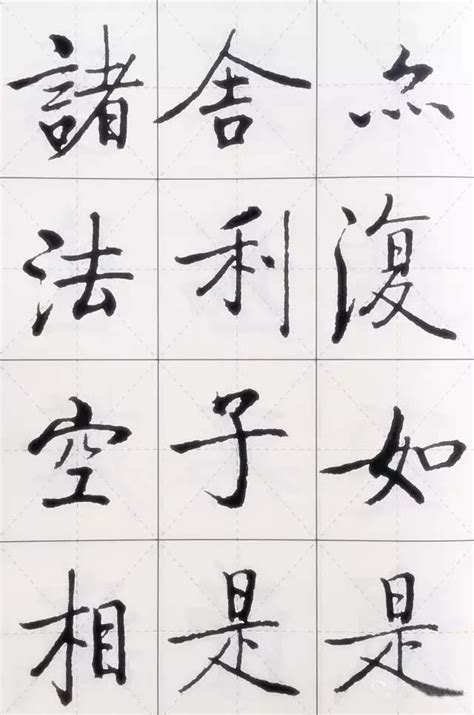 亦復如是
舍利子是
諸法空相